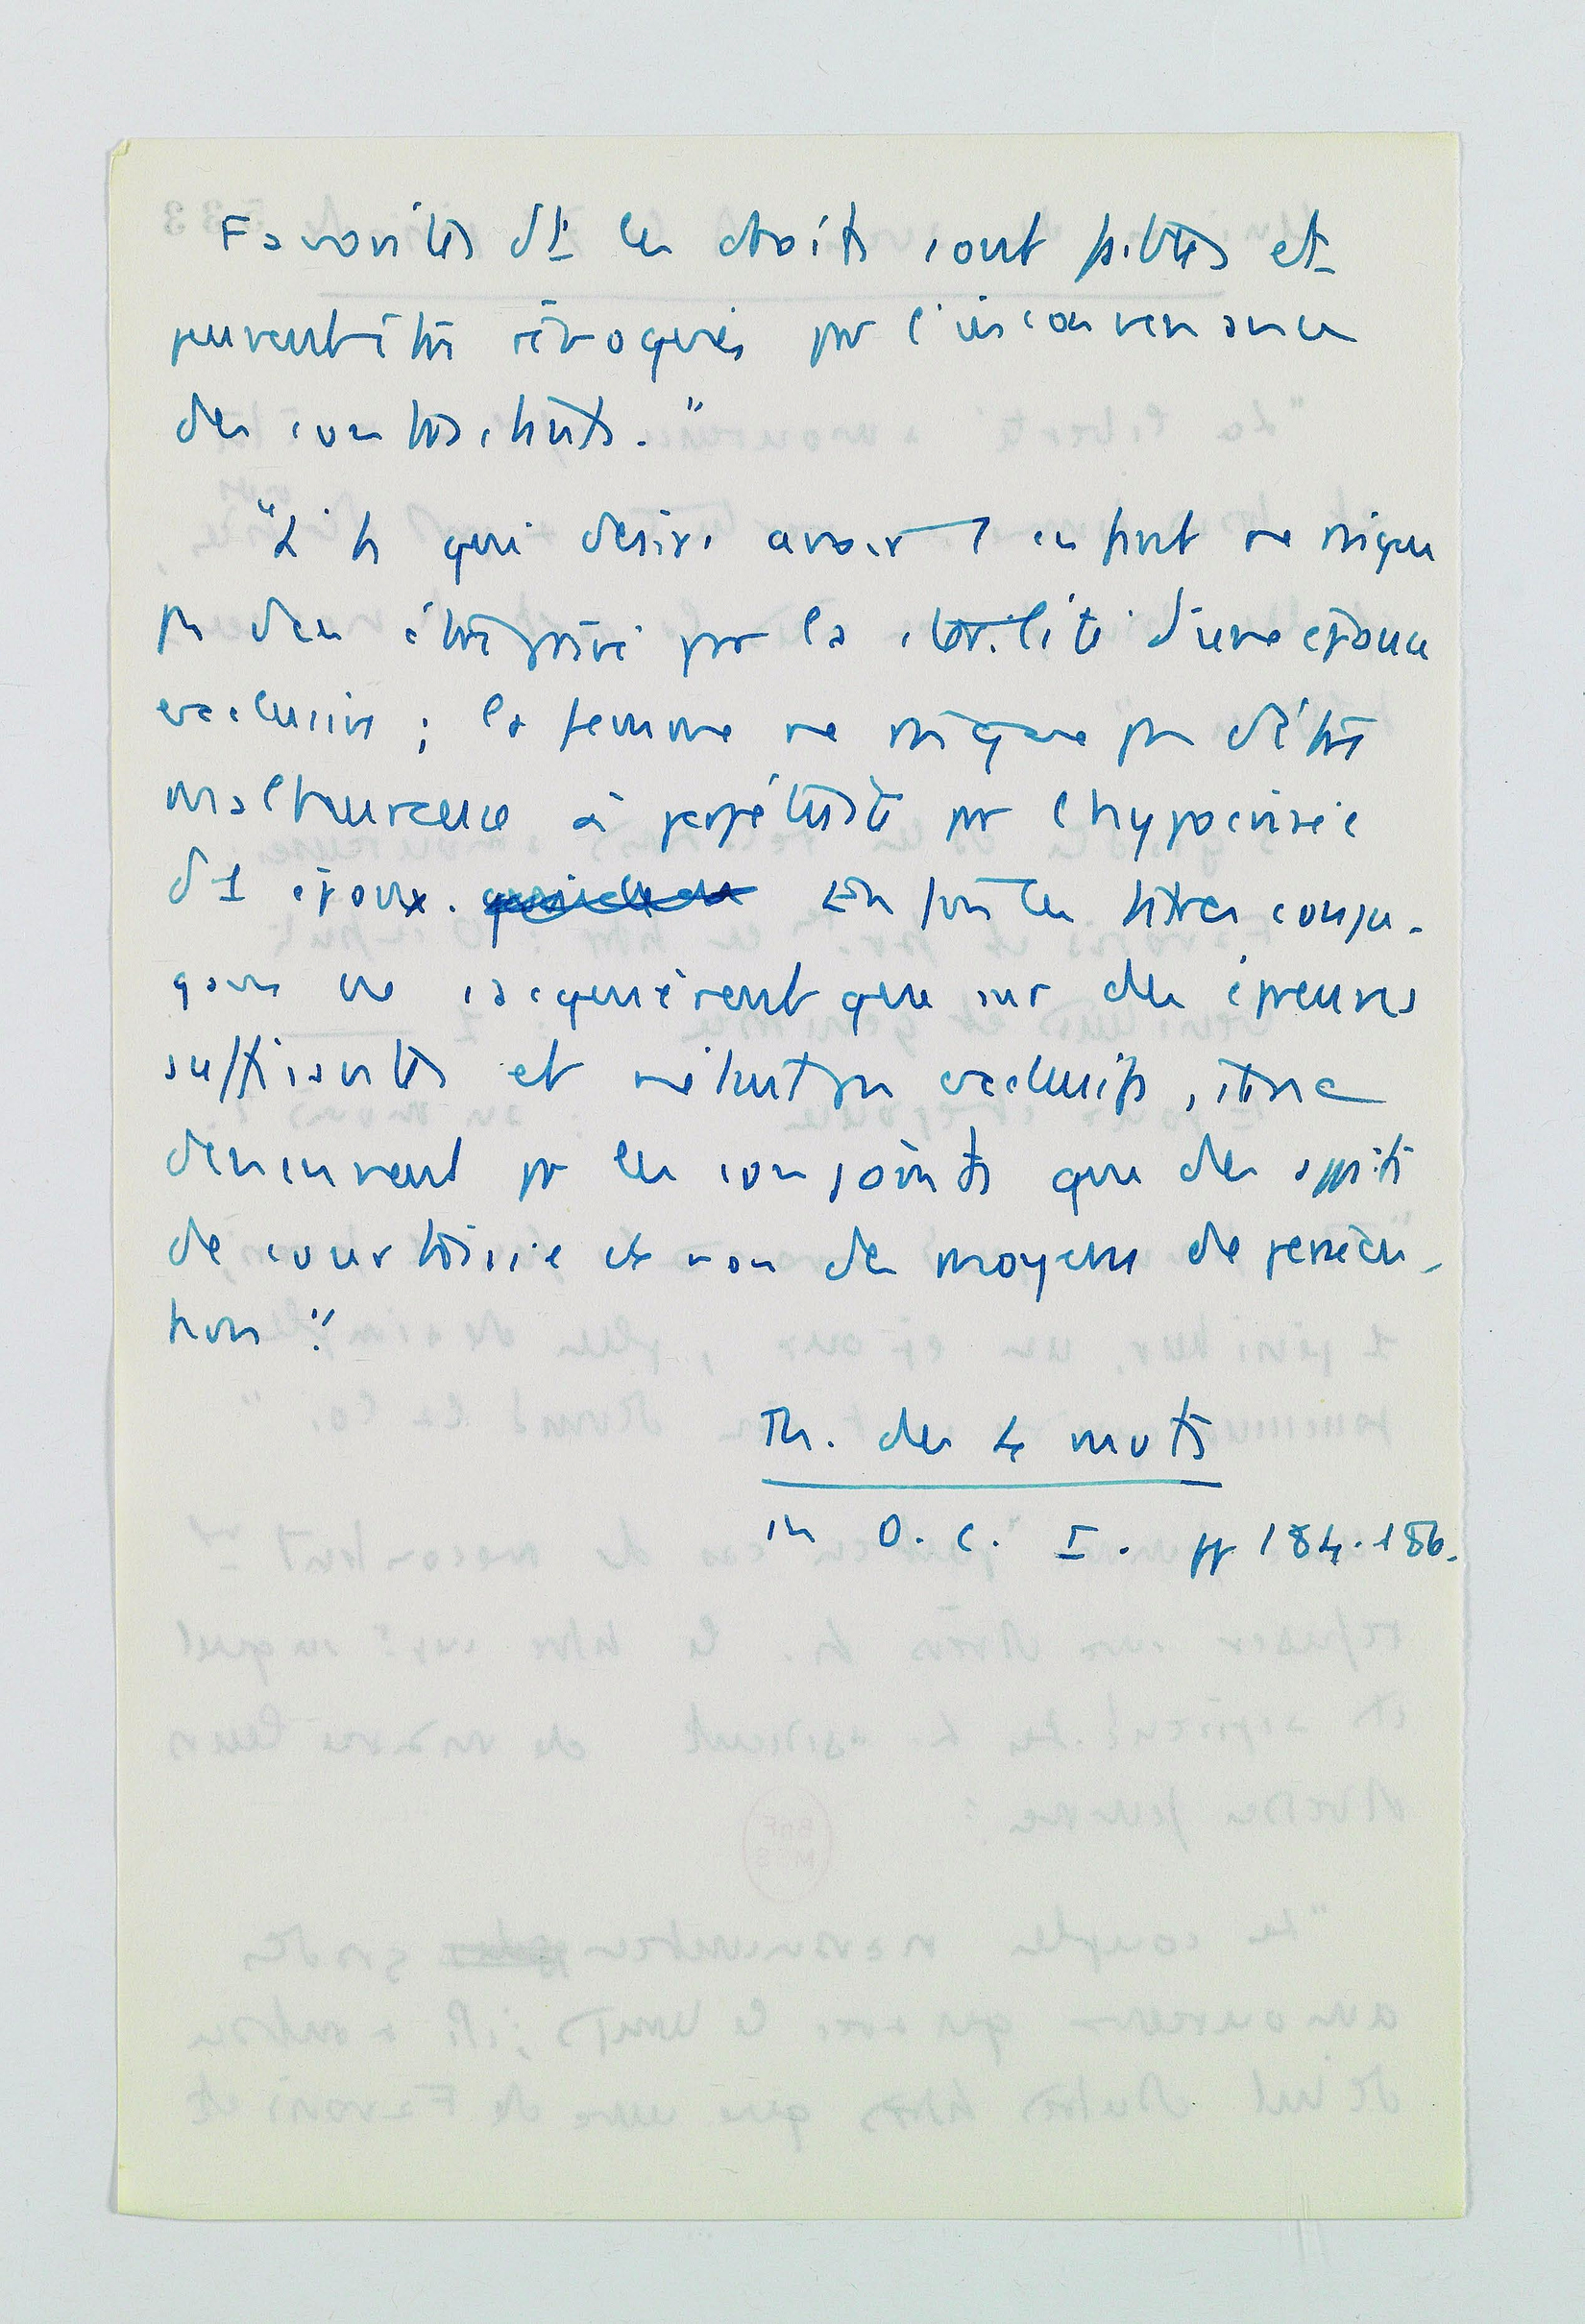 Favorites dt les droits sont faibles et
peuvent être révoqués pr l'inconvenance
des contractants."
"L'h qui désire avoir 1 enfant ne risque
ps d'en être privé par la stérilité d'une épouse
exclusive ; la femme ne risque ps d'être
malheureuse à perpétuité pr l'hypocrisie
d'1 époux. Enfin les titres conju-
gaux ne s'acquièrent que sur des épreuves
suffisantes et n'étant ps exclusifs, ils ne
demeurent pr les conjoints que des appâts
de courtoisie et non des moyens de persécu-
tion".
Th. des 4 mvts
in O. C. I. pp 184-186.